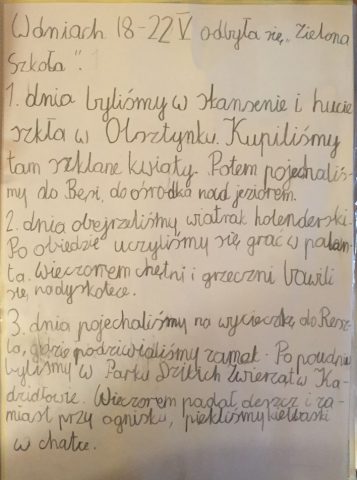 W dniach 18-22 V odbyła się „Zielona
Szkoła".
1. dnia byliśmy w skansenie i hucie
szkła w Olsztynku. Kupiliśmy
tam szklane kwiaty. Potem pojechaliś-
my do Bęsi, do ośrodka nad jeziorem.
2. dnia obejrzeliśmy wiatrak holenderski.
Po obiedzie uczyliśmy się grać w palan-
ta. Wieczorem chętni i grzeczni bawili
się na dyskotece.
3. dnia pojechaliśmy na wycieczkę do Resz-
la, gdzie podziwialiśmy zamek. Po południu
byliśmy w Parku Dzikich Zwierząt w Ka-
dzidłowie. Wieczorem padał deszcz i za-
miast przy ognisku, piekliśmy kiełbaski
w chatce.